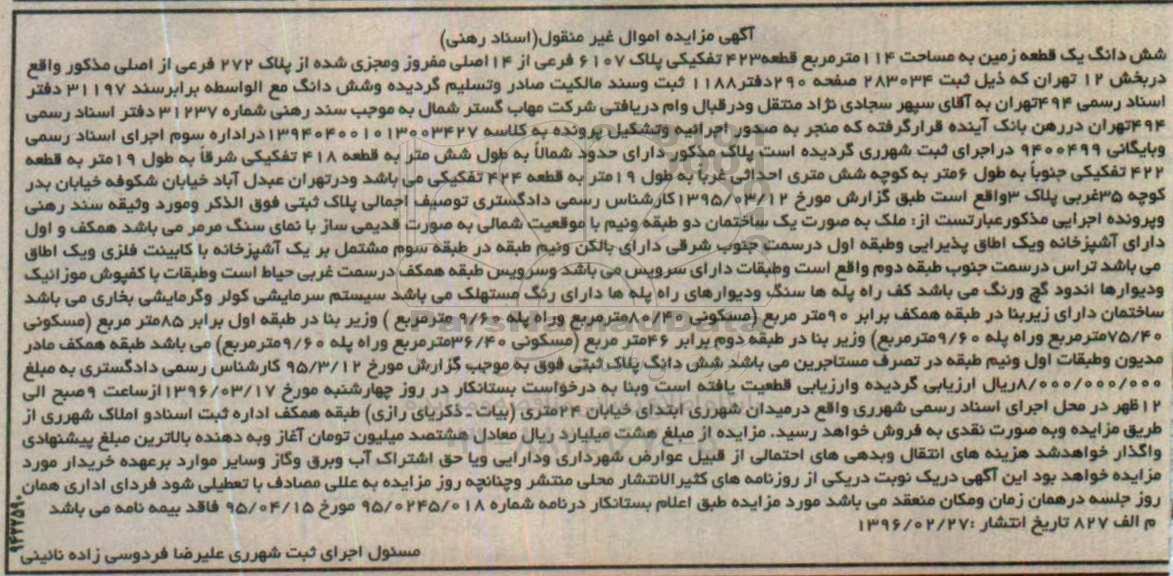 آگهی مزایده اموال غیر منقول(اسناد رهنی)
شش دانگ یک قطعه زمین به مساحت ۱۱۴مترمربع قطعه۴۲۳ تفکیکی پلاک ۶۱۰۷ فرعی از ۱۴اصلی مفروز ومجزی شده از پلاک ۲۷۲ فرعی از اصلی مذکور واقع
دربخش ۱۲ تهران که ذیل ثبت ۲۸۳۰۳۴ صفحه ۲۹۰دفتر۱۱۸۸ ثبت وسند مالکیت صادر وتسلیم گردیده وشش دانگ مع الواسطه برابرسند ۳۱۱۹۷ دفتر
اسناد رسمی ۴۹۴تهران به آقای سپهر سجادی نژاد منتقل ودرقبال وام دریافتی شرکت مهاب گستر شمال به موجب سند رهنی شماره ۳۱۲۳۷ دفتر اسناد رسمی
۴۹۴تهران دررهن بانک آینده قرارگرفته که منجر به صدور اجرائیه وتشکیل پرونده به کلاسه ۱۳۹۴۰۴۰۰۱۰۱۳۰۰۳۴۲۷دراداره سوم اجرای اسناد رسمی
وبایگانی ۹۴۰۰۴۹۹ دراجرای ثبت شهرری گردیده است پلاک مذکور دارای حدود شمالاً به طول شش متر به قطعه ۴۱۸ تفکیکی شرقاً به طول ۱۹متر به قطعه
۴۲۲ تفکیکی جنوباً به طول ۶متر به کوچه شش متری احداثی غرباً به طول ۱۹متر به قطعه ۴۲۴ تفکیکی می باشد ودرتهران عبدل آباد خیابان شکوفه خیابان بدر
کوچه ۳۵غربی پلاک ۳واقع است طبق گزارش مورخ ۱۳۹۵/۰۳/۱۲کارشناس رسمی دادگستری توصیف اجمالی پلاک ثبتی فوق الذکر ومورد وثیقه سند رهنی
وپرونده اجرایی مذکورعبارتست از: ملک به صورت یک ساختمان دو طبقه ونیم با موقعیت شمالی به صورت قدیمی ساز با نمای سنگ مرمر می باشد همکف و اول
دارای آشپزخانه ویک اطاق پذیرایی وطبقه اول درسمت جنوب شرقی دارای بالکن ونیم طبقه در طبقه سوم مشتمل بر یک آشپزخانه با کابینت فلزی ویک اطاق
می باشد تراس درسمت جنوب طبقه دوم واقع است وطبقات دارای سرویس می باشد وسرویس طبقه همکف درسمت غربی حیاط است وطبقات با کفپوش موزائیک
ودیوارها اندود گچ ورنگ می باشد کف راه پله ها سنگ ودیوارهای راه پله ها دارای رنگ مستهلک می باشد سیستم سرمایشی کولر وگرمایشی بخاری می باشد
ساختمان دارای زیربنا در طبقه همکف برابر ۹۰متر مربع (مسکونی ۸۰/۴۰مترمربع وراه پله ۹/۶۰ مترمربع ) وزیر بنا در طبقه اول برابر ۸۵متر مربع (مسکونی
۷۵/۴۰مترمربع وراه پله ۹/۶۰مترمربع) وزیر بنا در طبقه دوم برابر ۴۶متر مربع (مسکونی ۳۶/۴۰مترمربع وراه پله ۹/۶۰مترمربع) می باشد طبقه همکف مادر
مدیون وطبقات اول ونیم طبقه در تصرف مستاجرین می باشد شش دانگ پلاک ثبتی فوق به موجب گزارش مورخ ۹۵/۳/۱۲ کارشناس رسمی دادگستری به مبلغ
۸/۰۰۰/۰۰۰/۰۰۰ریال ارزیابی گردیده وارزیابی قطعیت یافته است وبنا به درخواست بستانکار در روز چهارشنبه مورخ ۱۳۹۶/۰۳/۱۷ازساعت ۹صبح الی
۱۲ظهر در محل اجرای اسناد رسمی شهرری واقع درمیدان شهرری ابتدای خیابان ۲۴متری (بیات . ذکریای رازی) طبقه همکف اداره ثبت اسنادو املاک شهرری از
طریق مزایده وبه صورت نقدی به فروش خواهد رسید. مزایده از مبلغ هشت میلیارد ریال معادل هشتصد میلیون تومان آغاز وبه دهنده بالاترین مبلغ پیشنهادی
واگذار خواهدشد هزینه های انتقال وبدهی های احتمالی از قبیل عوارض شهرداری ودارایی ویا حق اشتراک آب وبرق وگاز وسایر موارد برعهده خریدار مورد
مزایده خواهد بود این آگهی دریک نوبت دریکی از روزنامه های کثیرالانتشار محلی منتشر وچنانچه روز مزایده به عللی مصادف با تعطیلی شود فردای اداری همان
روز جلسه درهمان زمان ومکان منعقد می باشد مورد مزایده طبق اعلام بستانکار درنامه شماره ۹۵/۰۲۴۵/۰۱۸ مورخ ۹۵/۰۴/۱۵ فاقد بیمه نامه می باشد
م الف ۸۲۷ تاریخ انتشار :۱۳۹۶/۰۲/۲۷
مسئول اجرای ثبت شهرری علیرضا فردوسی زاده نائینی
ParsNamadData